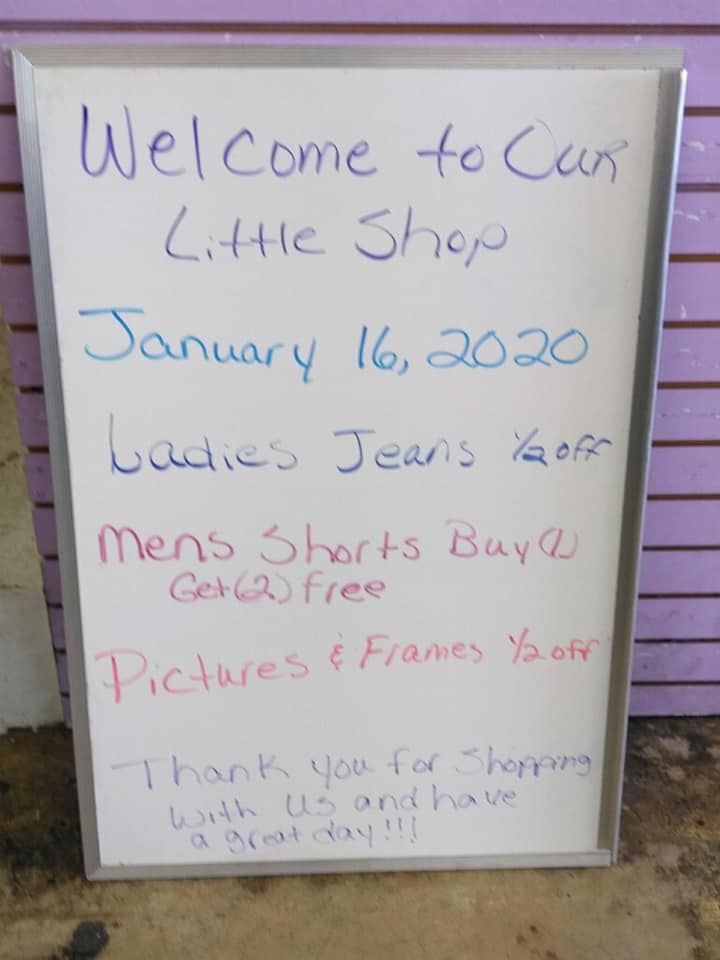 Welcome to Our
Little Shop
January 16, 2020
Ladies Jeans 1/2 off
Mens Shorts Buy (1)
Get (2) free
Pictures & Frames 1/2 off
Thank you for Shopping
with us and have
a great day!!!